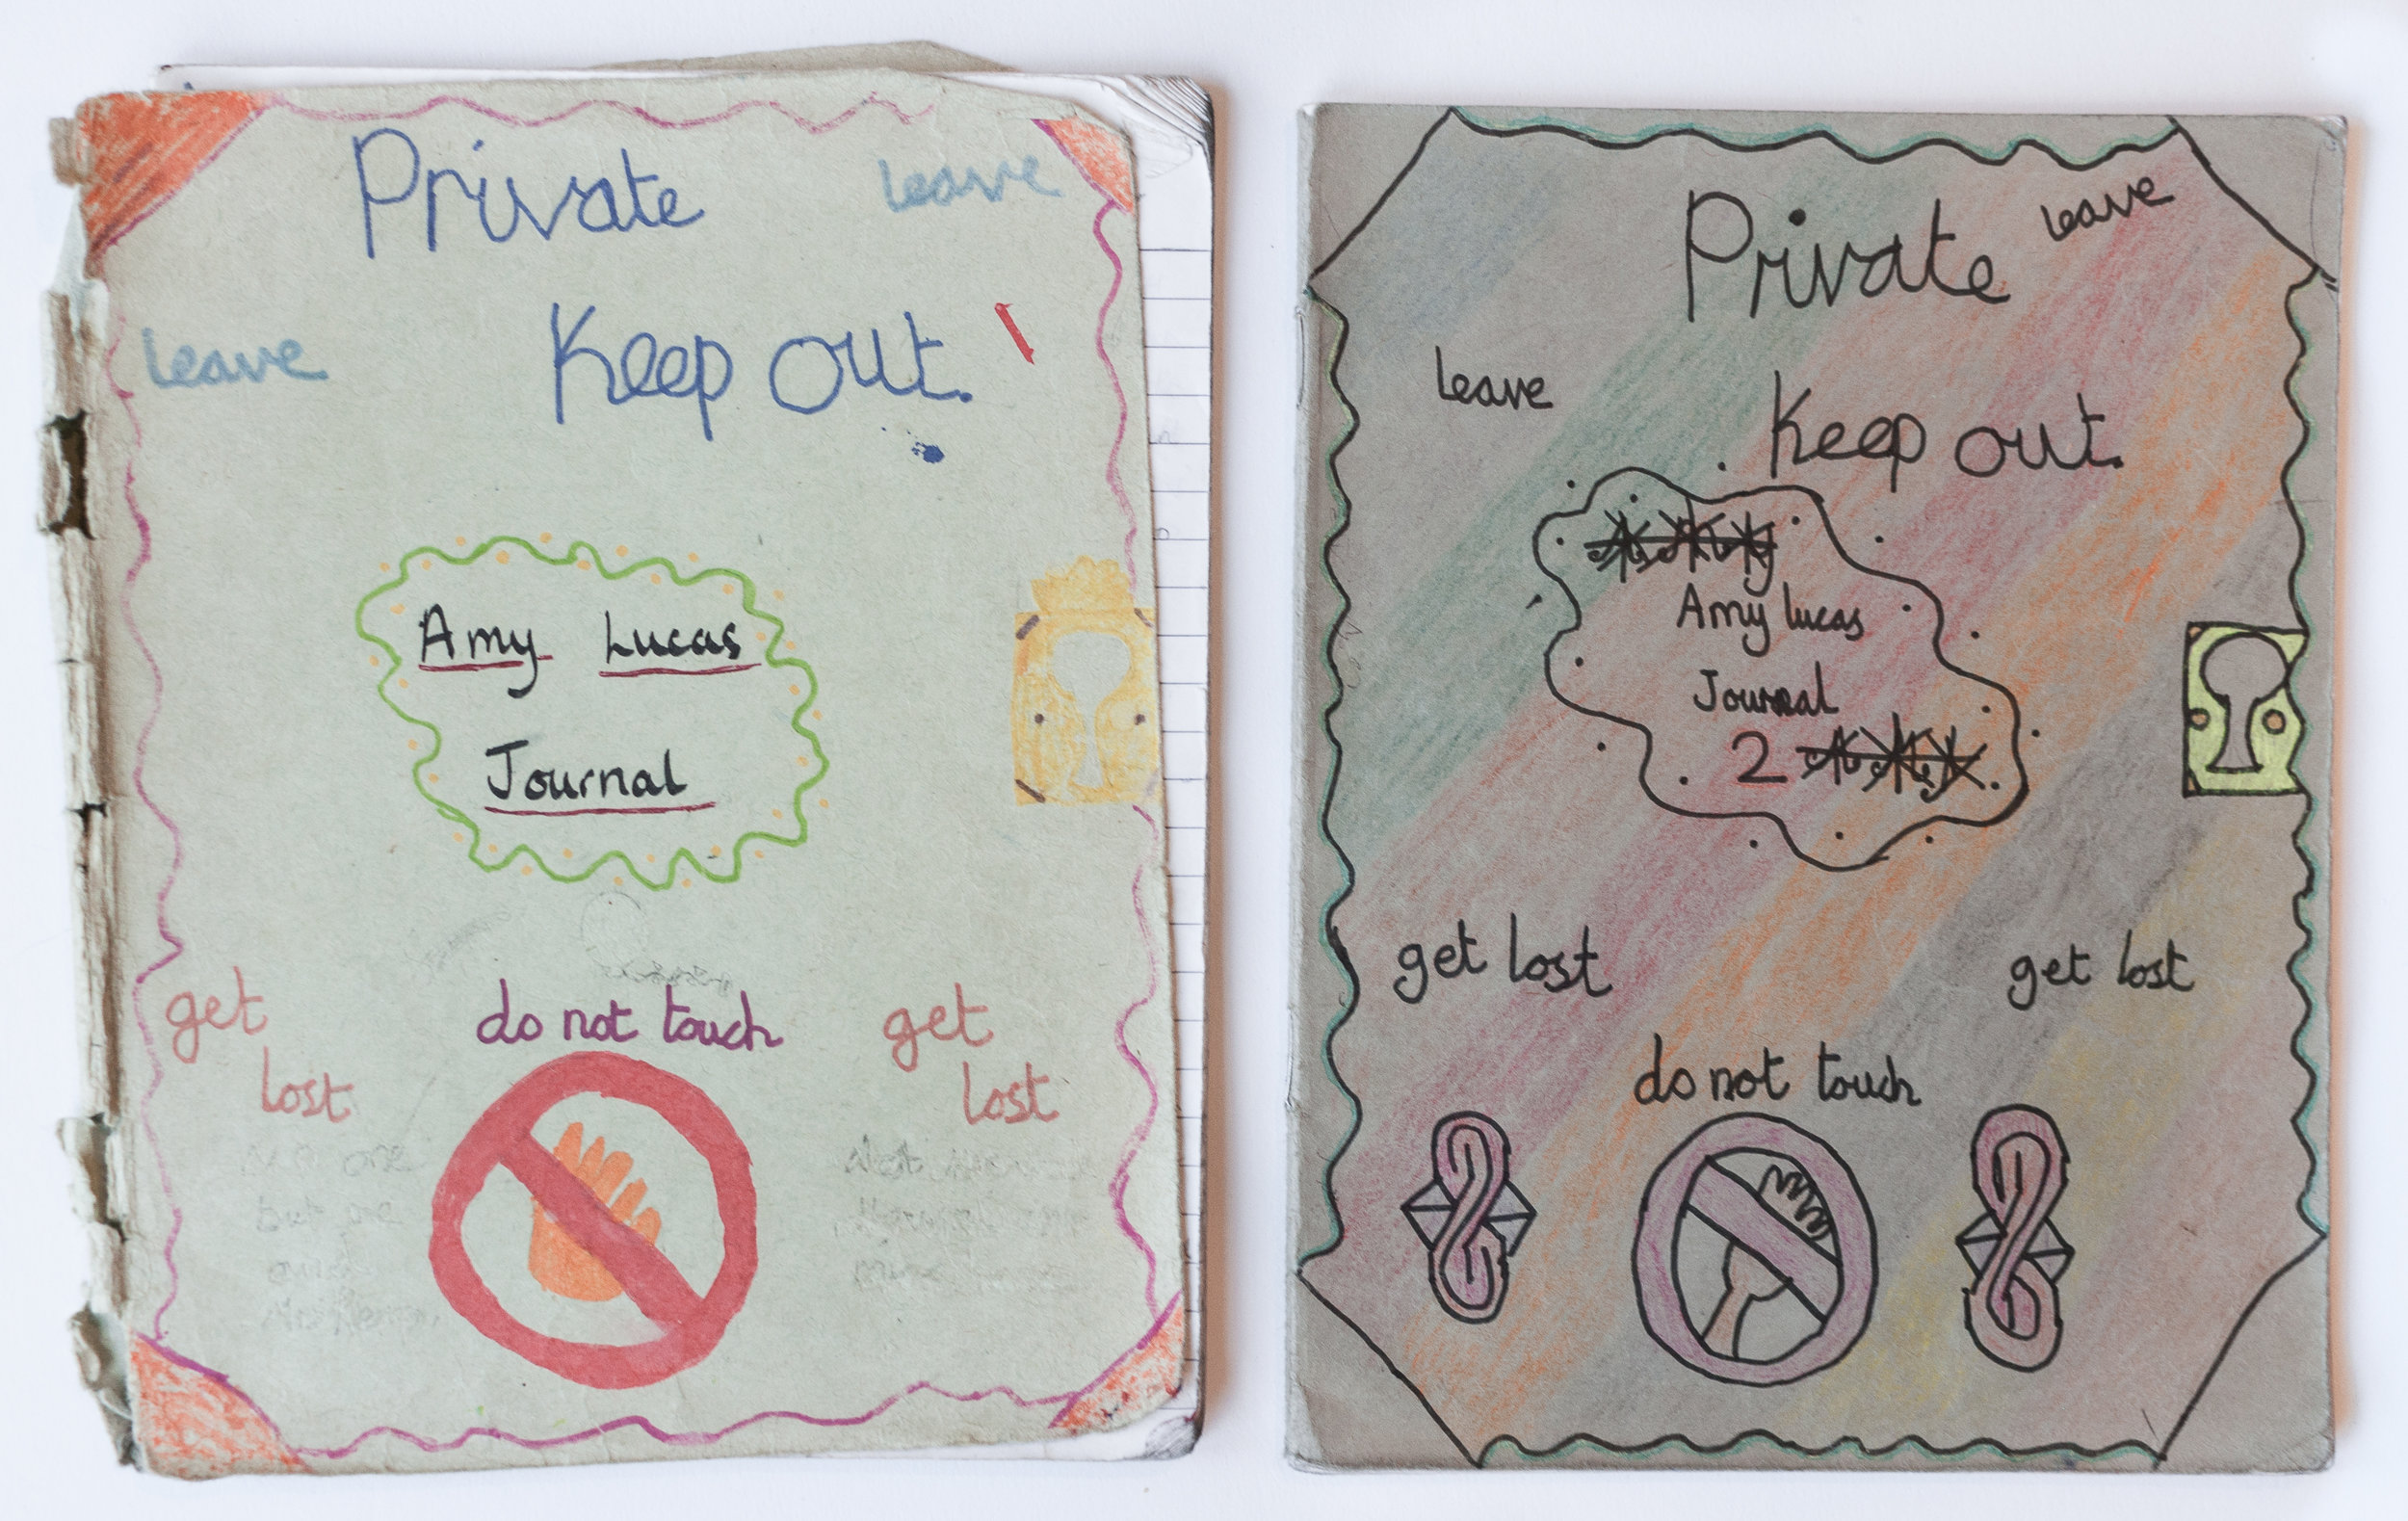 Private
leave
leave
Keep out.
Amy Lucas
Journal
do not touch
get
lost
get
lost
No one
but me
Private
leave
leave
Keep out.
Amy lucas
Journal
2
get lost
get lost
do not touch